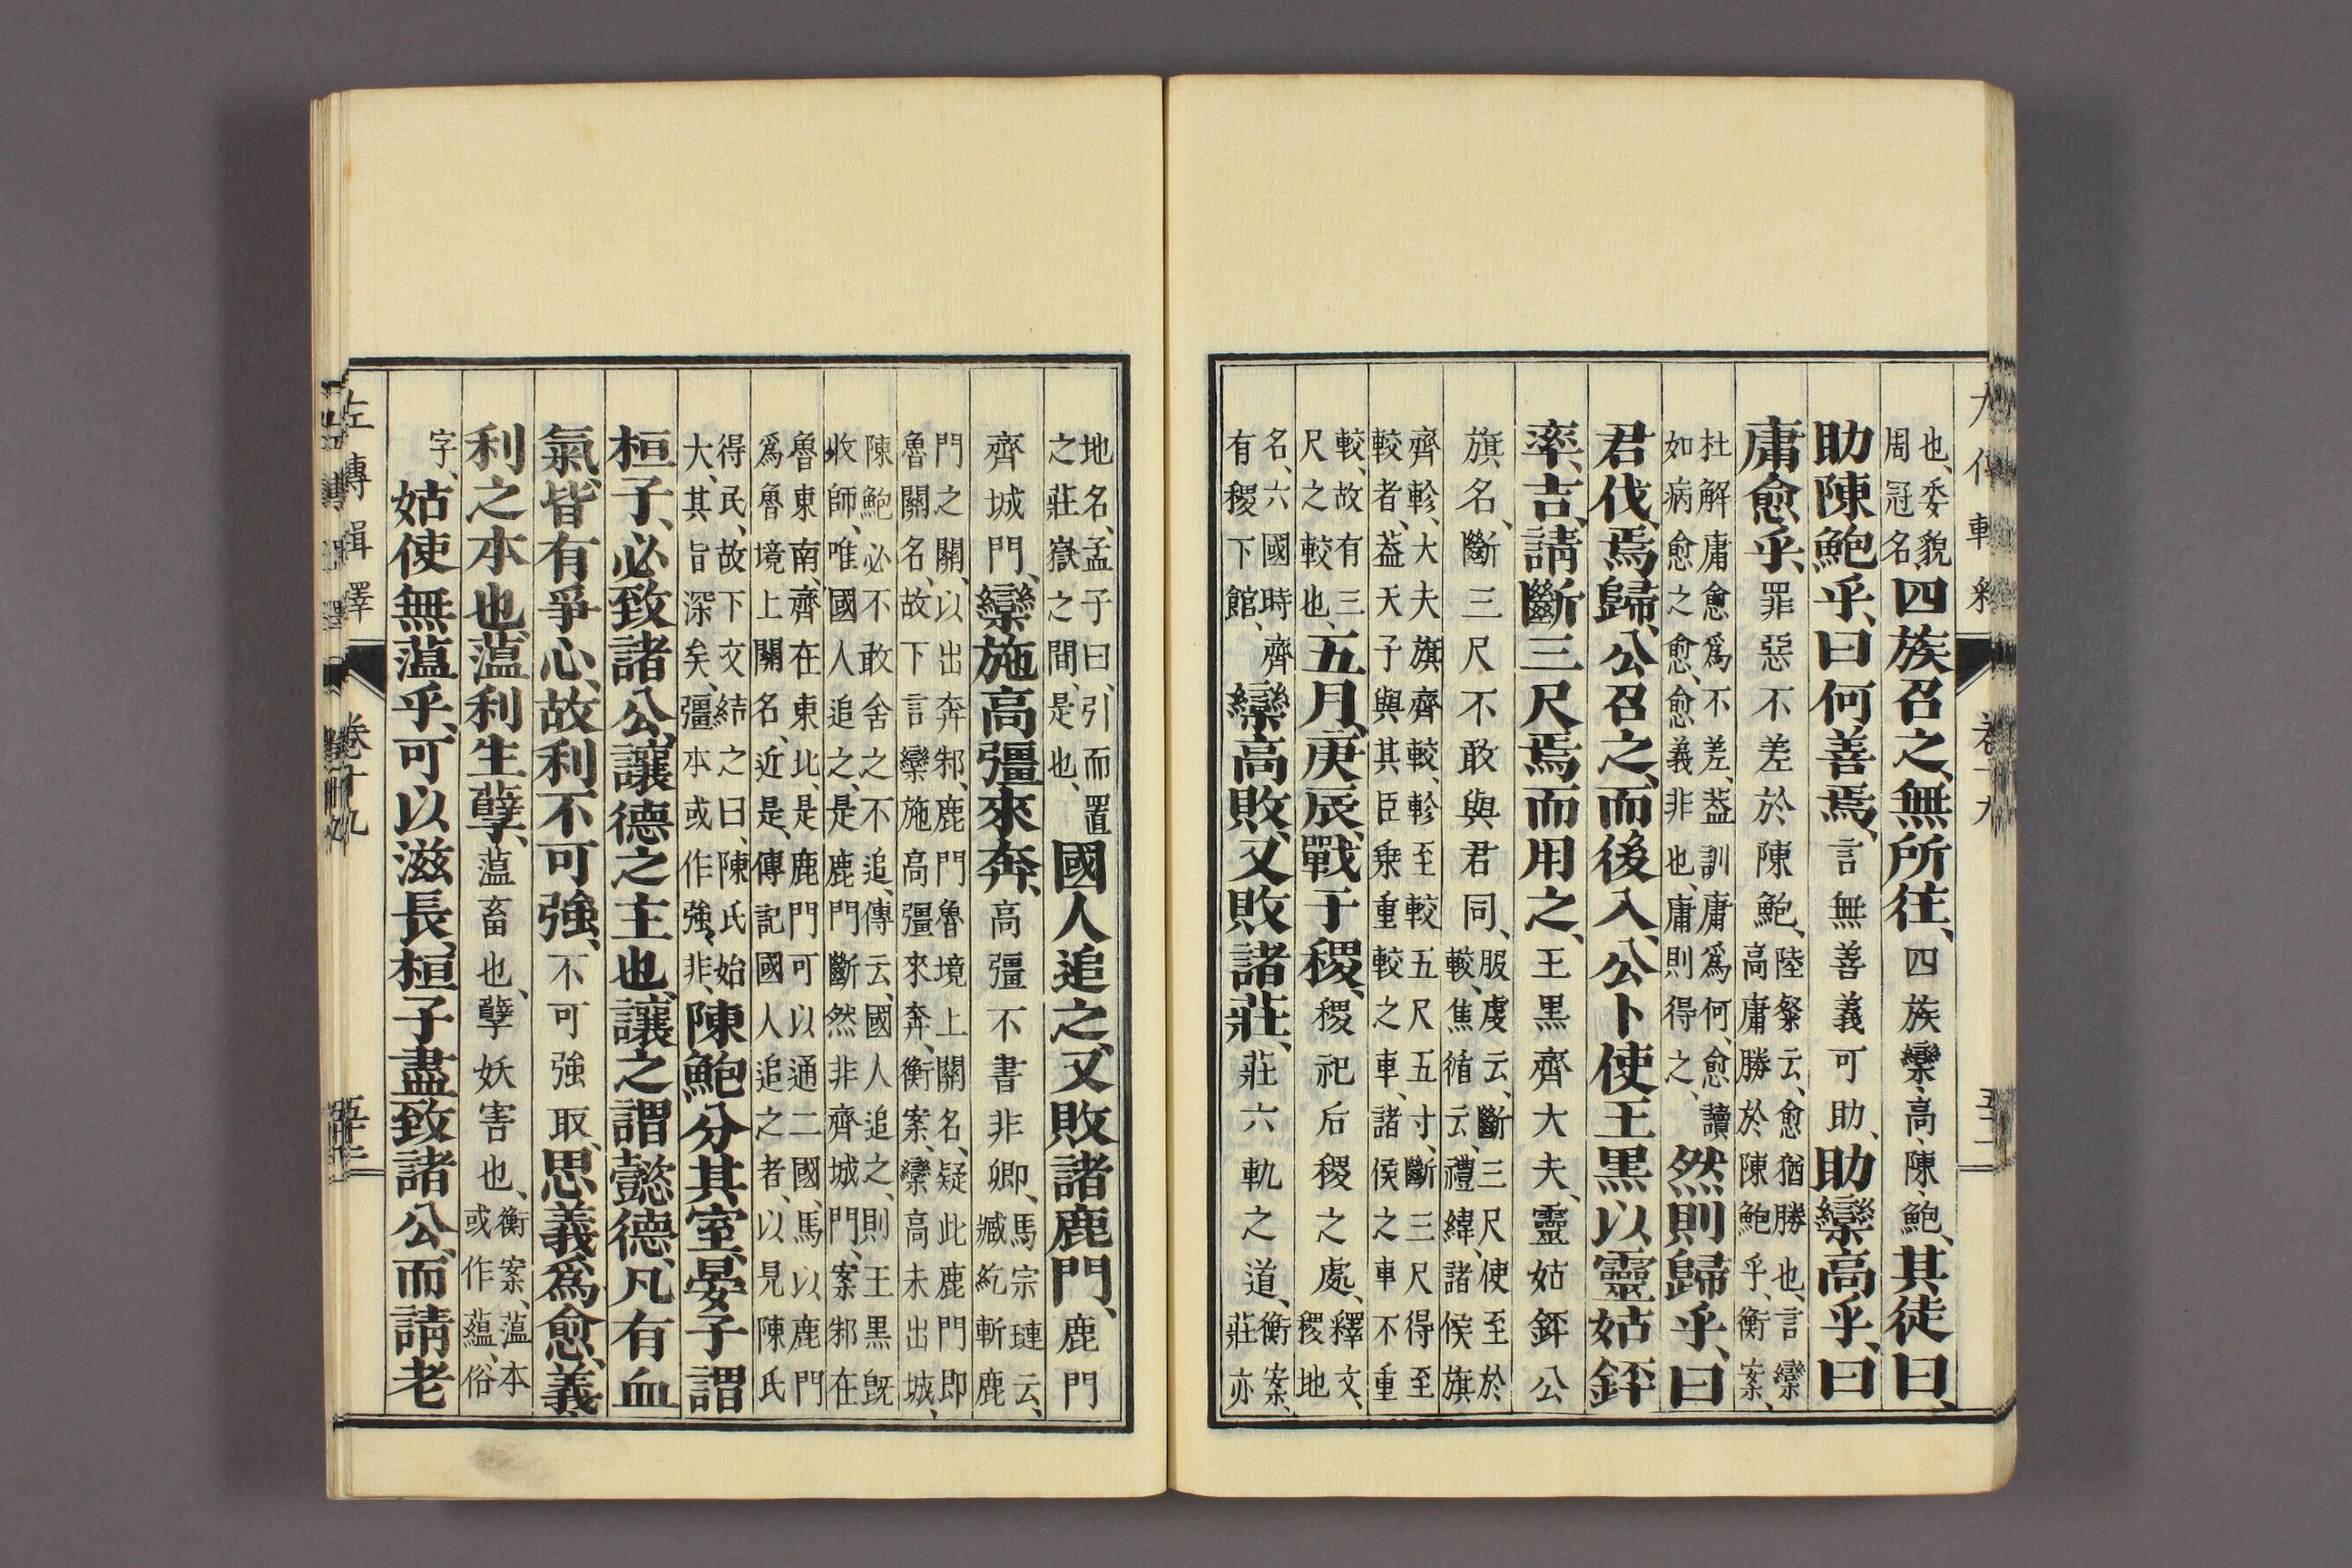 也、委貌
周冠名、
四族召之、無所往、四族欒、高、陳、鮑、其徒曰、
助陳鮑乎、曰何善焉、言無善義可助、助欒高乎、曰
庸愈乎、罪惡不差於陳鮑、
陸粲云、愈猶勝也、言欒
高庸勝於陳鮑乎、衡案、
杜解庸愈爲不差、葢訓庸爲何、愈讀
如病愈之愈、愈義非也、庸則得之、
然則歸乎、曰
君伐、焉歸、公召之、而後入、公卜使王黒以靈姑銔
率、吉、請斷三尺焉而用之、王黒齊大夫、靈姑銔公
旗名、斷三尺不敢與君同、
服虔云、斷三尺使至於
較、焦循云、禮緯、諸侯旗
齊軫、大夫旗齊較、軫至較五尺五寸、斷三尺得至
較者、葢天子與其臣乗重較之車、諸侯之車不重
較、故有三
尺之較也、
五月、庚辰、戰于稷、稷祀后稷之處、
釋文、
稷地
名、六國時、齊
有稷下館、
欒高敗、又敗諸莊、莊六軌之道、
衡案、
莊亦
地名、孟子曰、引而置
之莊嶽之間、是也、
國人追之、又敗諸鹿門、鹿門
齊城門、欒施高彊來奔、高彊不書非卿、
馬宗璉云、
臧紇斬鹿
門之關、以出奔邾、鹿門魯境上關名、疑此鹿門即
魯關名、故下言欒施高彊來奔、衡案、欒高未出城、
陳鮑必不敢舍之不追、傳云、國人追之、則王黒既
收師、唯國人追之、是鹿門斷然非齊城門、案邾在
魯東南、齊在東北、是鹿門可以通二國、馬以鹿門
爲魯境上關名、近是、傳記國人追之者、以見陳氏
得民、故下文結之曰、陳氏始
大、其旨深矣、彊本或作強、非、
陳鮑分其室、晏子謂
桓子、必致諸公、讓德之主也、讓之謂懿德、凡有血
氣、皆有爭心、故利不可強、不可強取、思義爲愈、義、
利之本也、薀利生孽、薀畜也、孽妖害也、
衡案、薀本
或作蘊、俗
字、
姑使無薀乎、可以滋長、桓子盡致諸公、而請老
左傳輯釋
卷十九